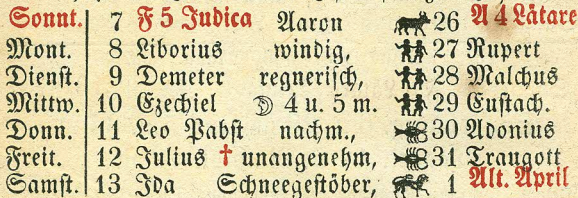 Sonnt. 7 F 5 Judica Aaron 26 A 4 Lätare
Mont. 8 Liborius windig, 27 Rupert
Dienst. 9 Demeter regnerisch, 28 Malchus
Mittw. 10 Ezechiel ☽ 4 u. 5 m. 29 Eustach.
Donn. 11 Leo Pabst nachm., 30 Adonius
Freit. 12 Julius † unangenehm, 31 Traugott
Samst. 13 Ida Schneegestöber, 1 Alt. April